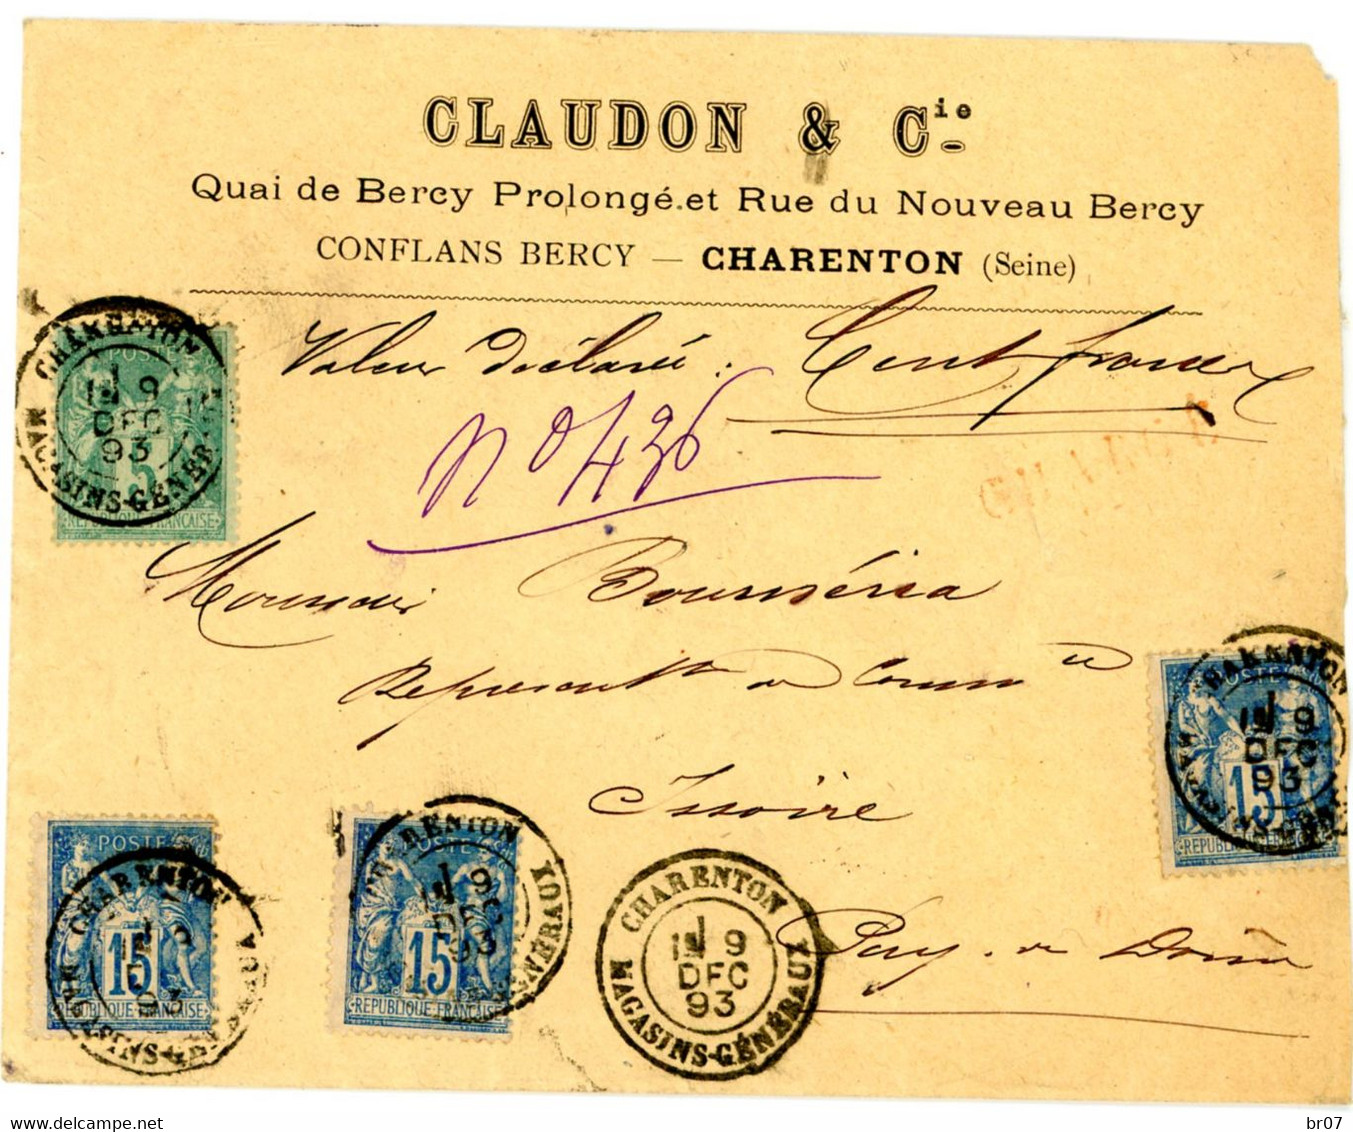 CLAUDON & Cie
Quai de Bercy Prolongé et Rue du Nouveau Bercy
CONFLANS BERCY — CHARENTON (Seine)
Valeur déclarée : Cent francs
CHARENTON
1 9
DEC
93
MAGASINS-GÉNÉRAUX
POSTE
5
REPUBLIQUE FRANÇAISE
CHARGÉ
No 436
Monsieur Bournéria
Représentt de Comm ce
Issoire
Puy-de Dôme
CHARENTON
1 9
DEC
93
MAGASINS-GÉNÉRAUX
POSTE
15
REPUBLIQUE FRANÇAISE
POSTE
15
REPUBLIQUE FRANÇAISE
CHARENTON
MAGASINS-GÉNÉRAUX
93
POSTE
15
REPUBLIQUE FRANÇAISE
CHARENTON
1 9
DEC
93
GÉNÉRAUX
CHARENTON
1 9
DEC
93
MAGASINS-GÉNÉRAUX
br07